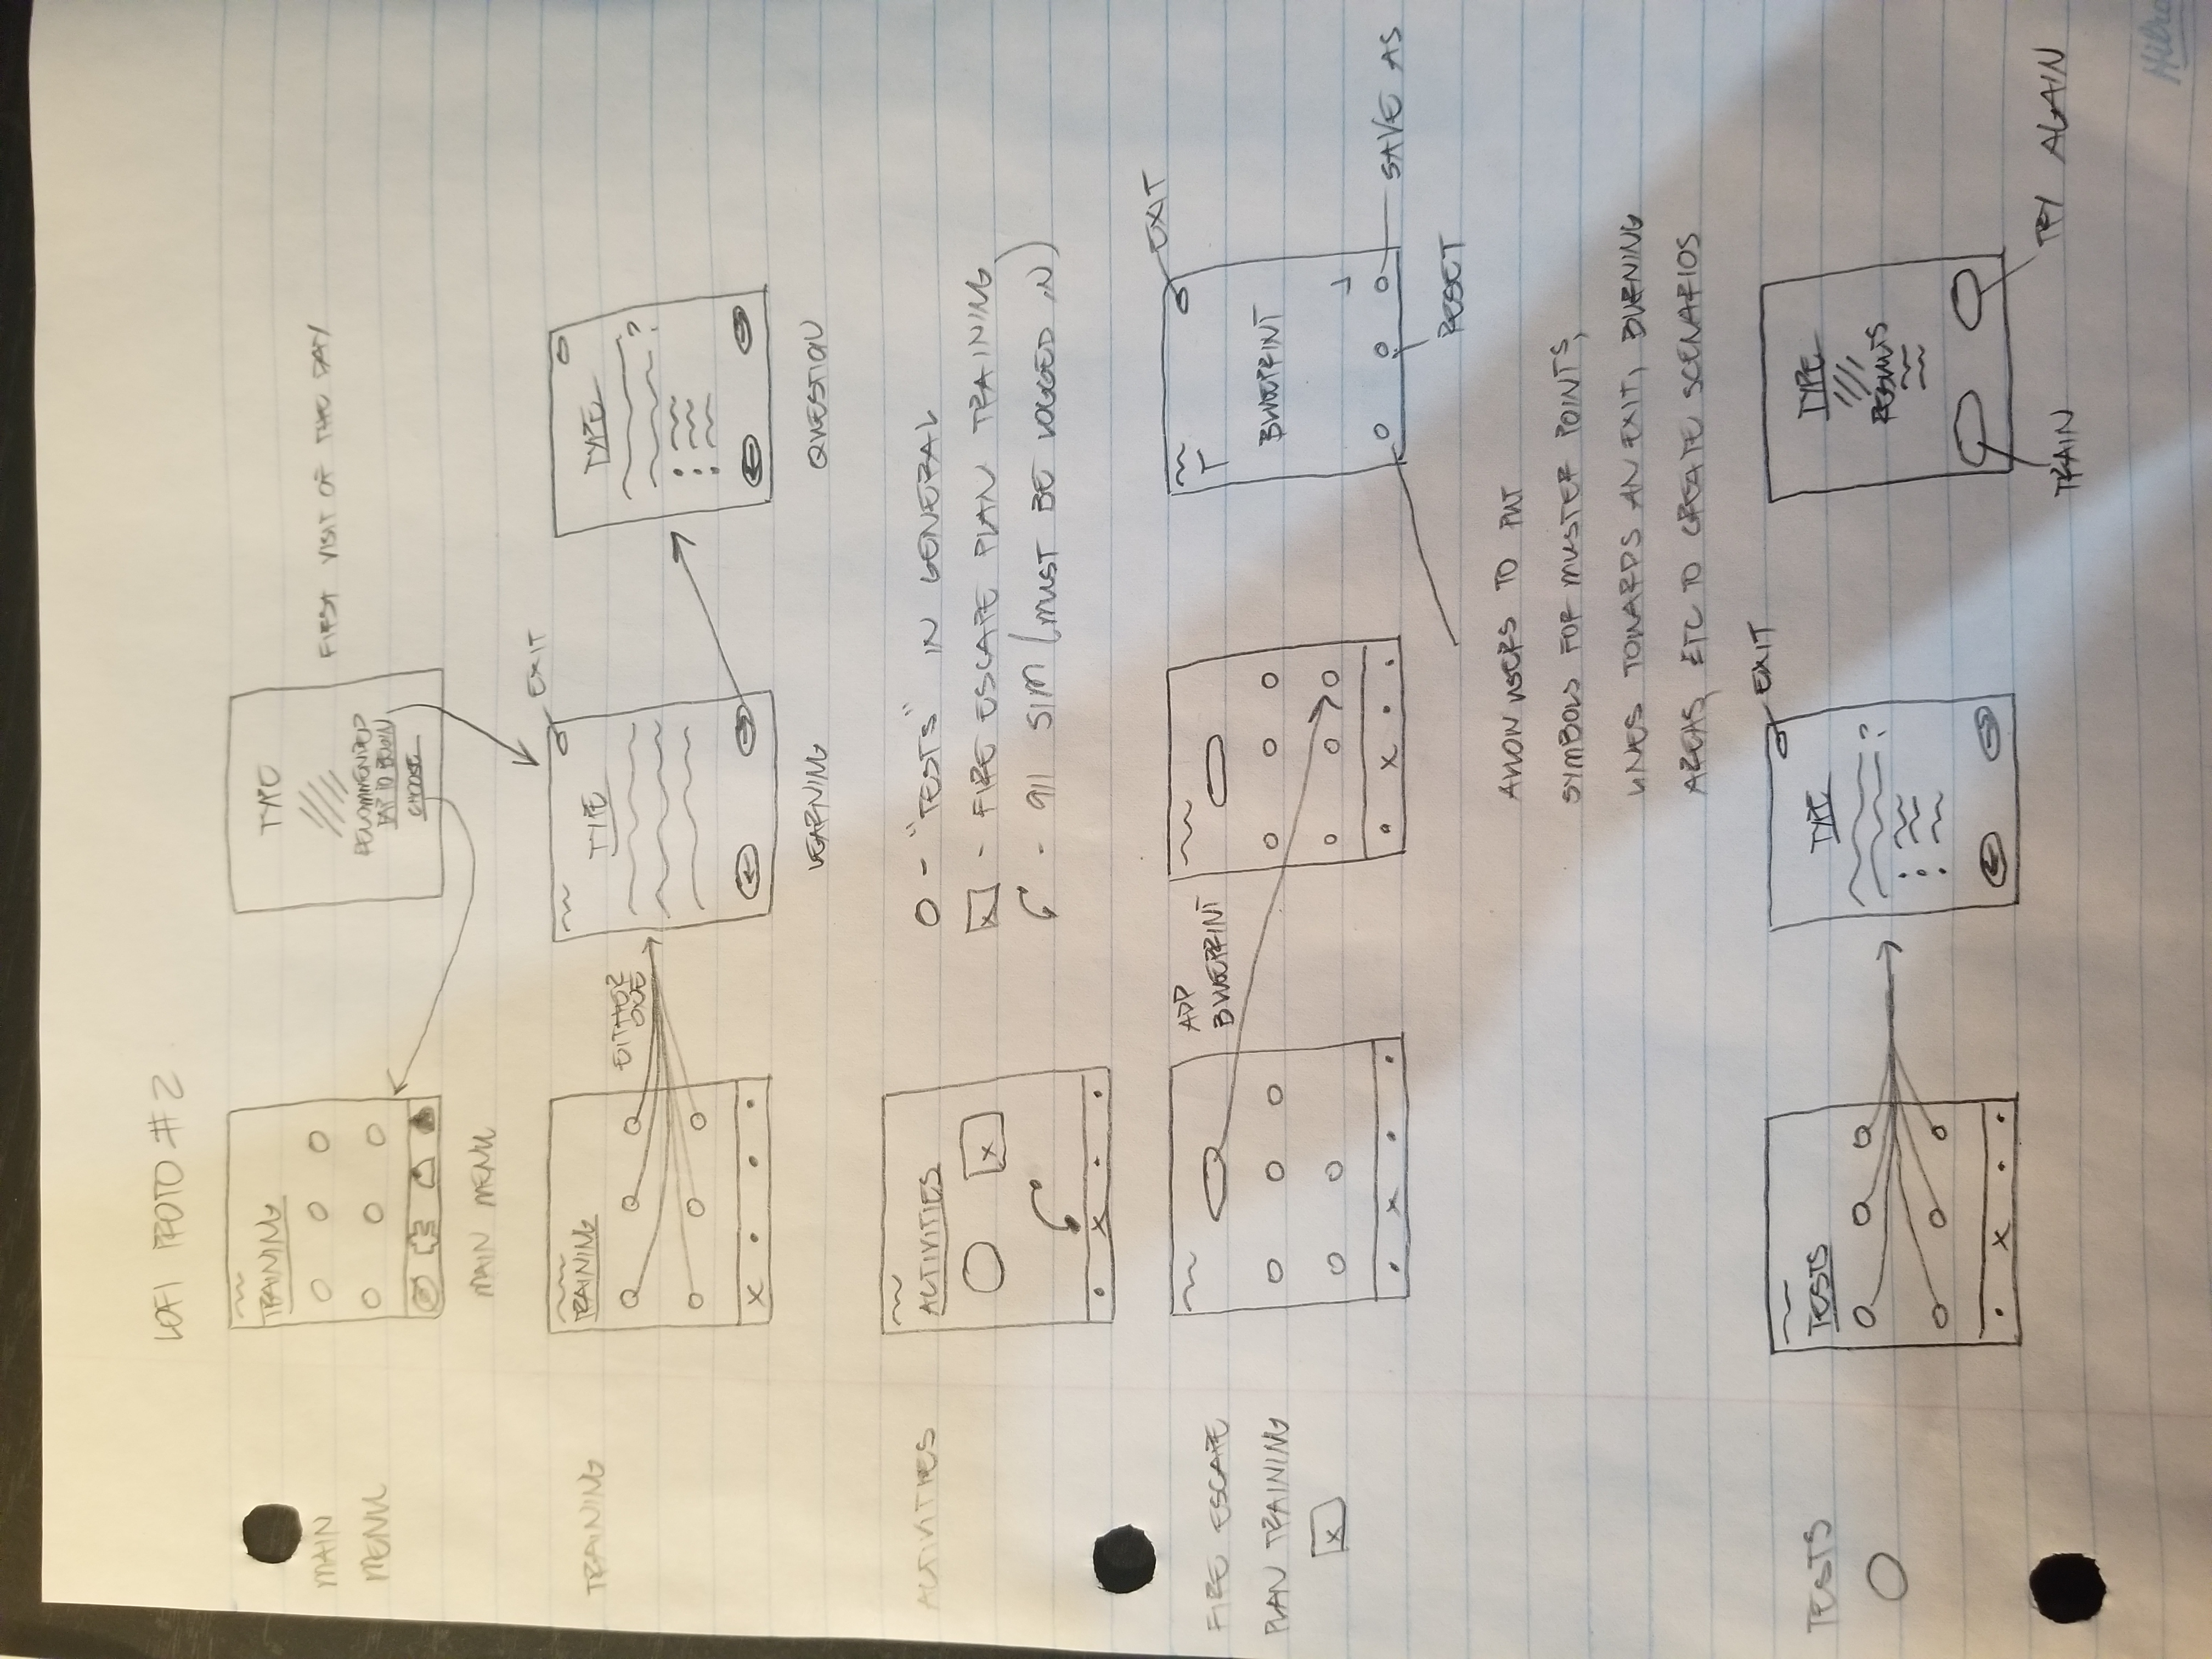 LOFI PROTO #2
MAIN
MENU
TRAINING
MAIN MENU
TYPE
RECOMMENDED
TAP TO BEGIN
CHOOSE
FIRST VISIT OF THE DAY
TRAINING
TRAINING
EITHER
ONE
EXIT
TYPE
LEARNING
TYPE
?
QUESTION
ACTIVITIES
ACTIVITIES
X
X
O - "TESTS" IN GENERAL
X - FIRE ESCAPE PLAN TRAINING
- 911 SIM (MUST BE LOGGED IN)
FIRE ESCAPE
PLAN TRAINING
X
X
ADD
BLUEPRINT
X
EXIT
BLUEPRINT
SAVE AS
RESET
ALLOW USERS TO PUT
SYMBOLS FOR MUSTER POINTS,
LINES TOWARDS AN EXIT, BURNING
AREAS, ETC TO CREATE SCENARIOS
TESTS
TESTS
X
EXIT
TYPE
?
TYPE
RESULTS
TRAIN
TRY AGAIN